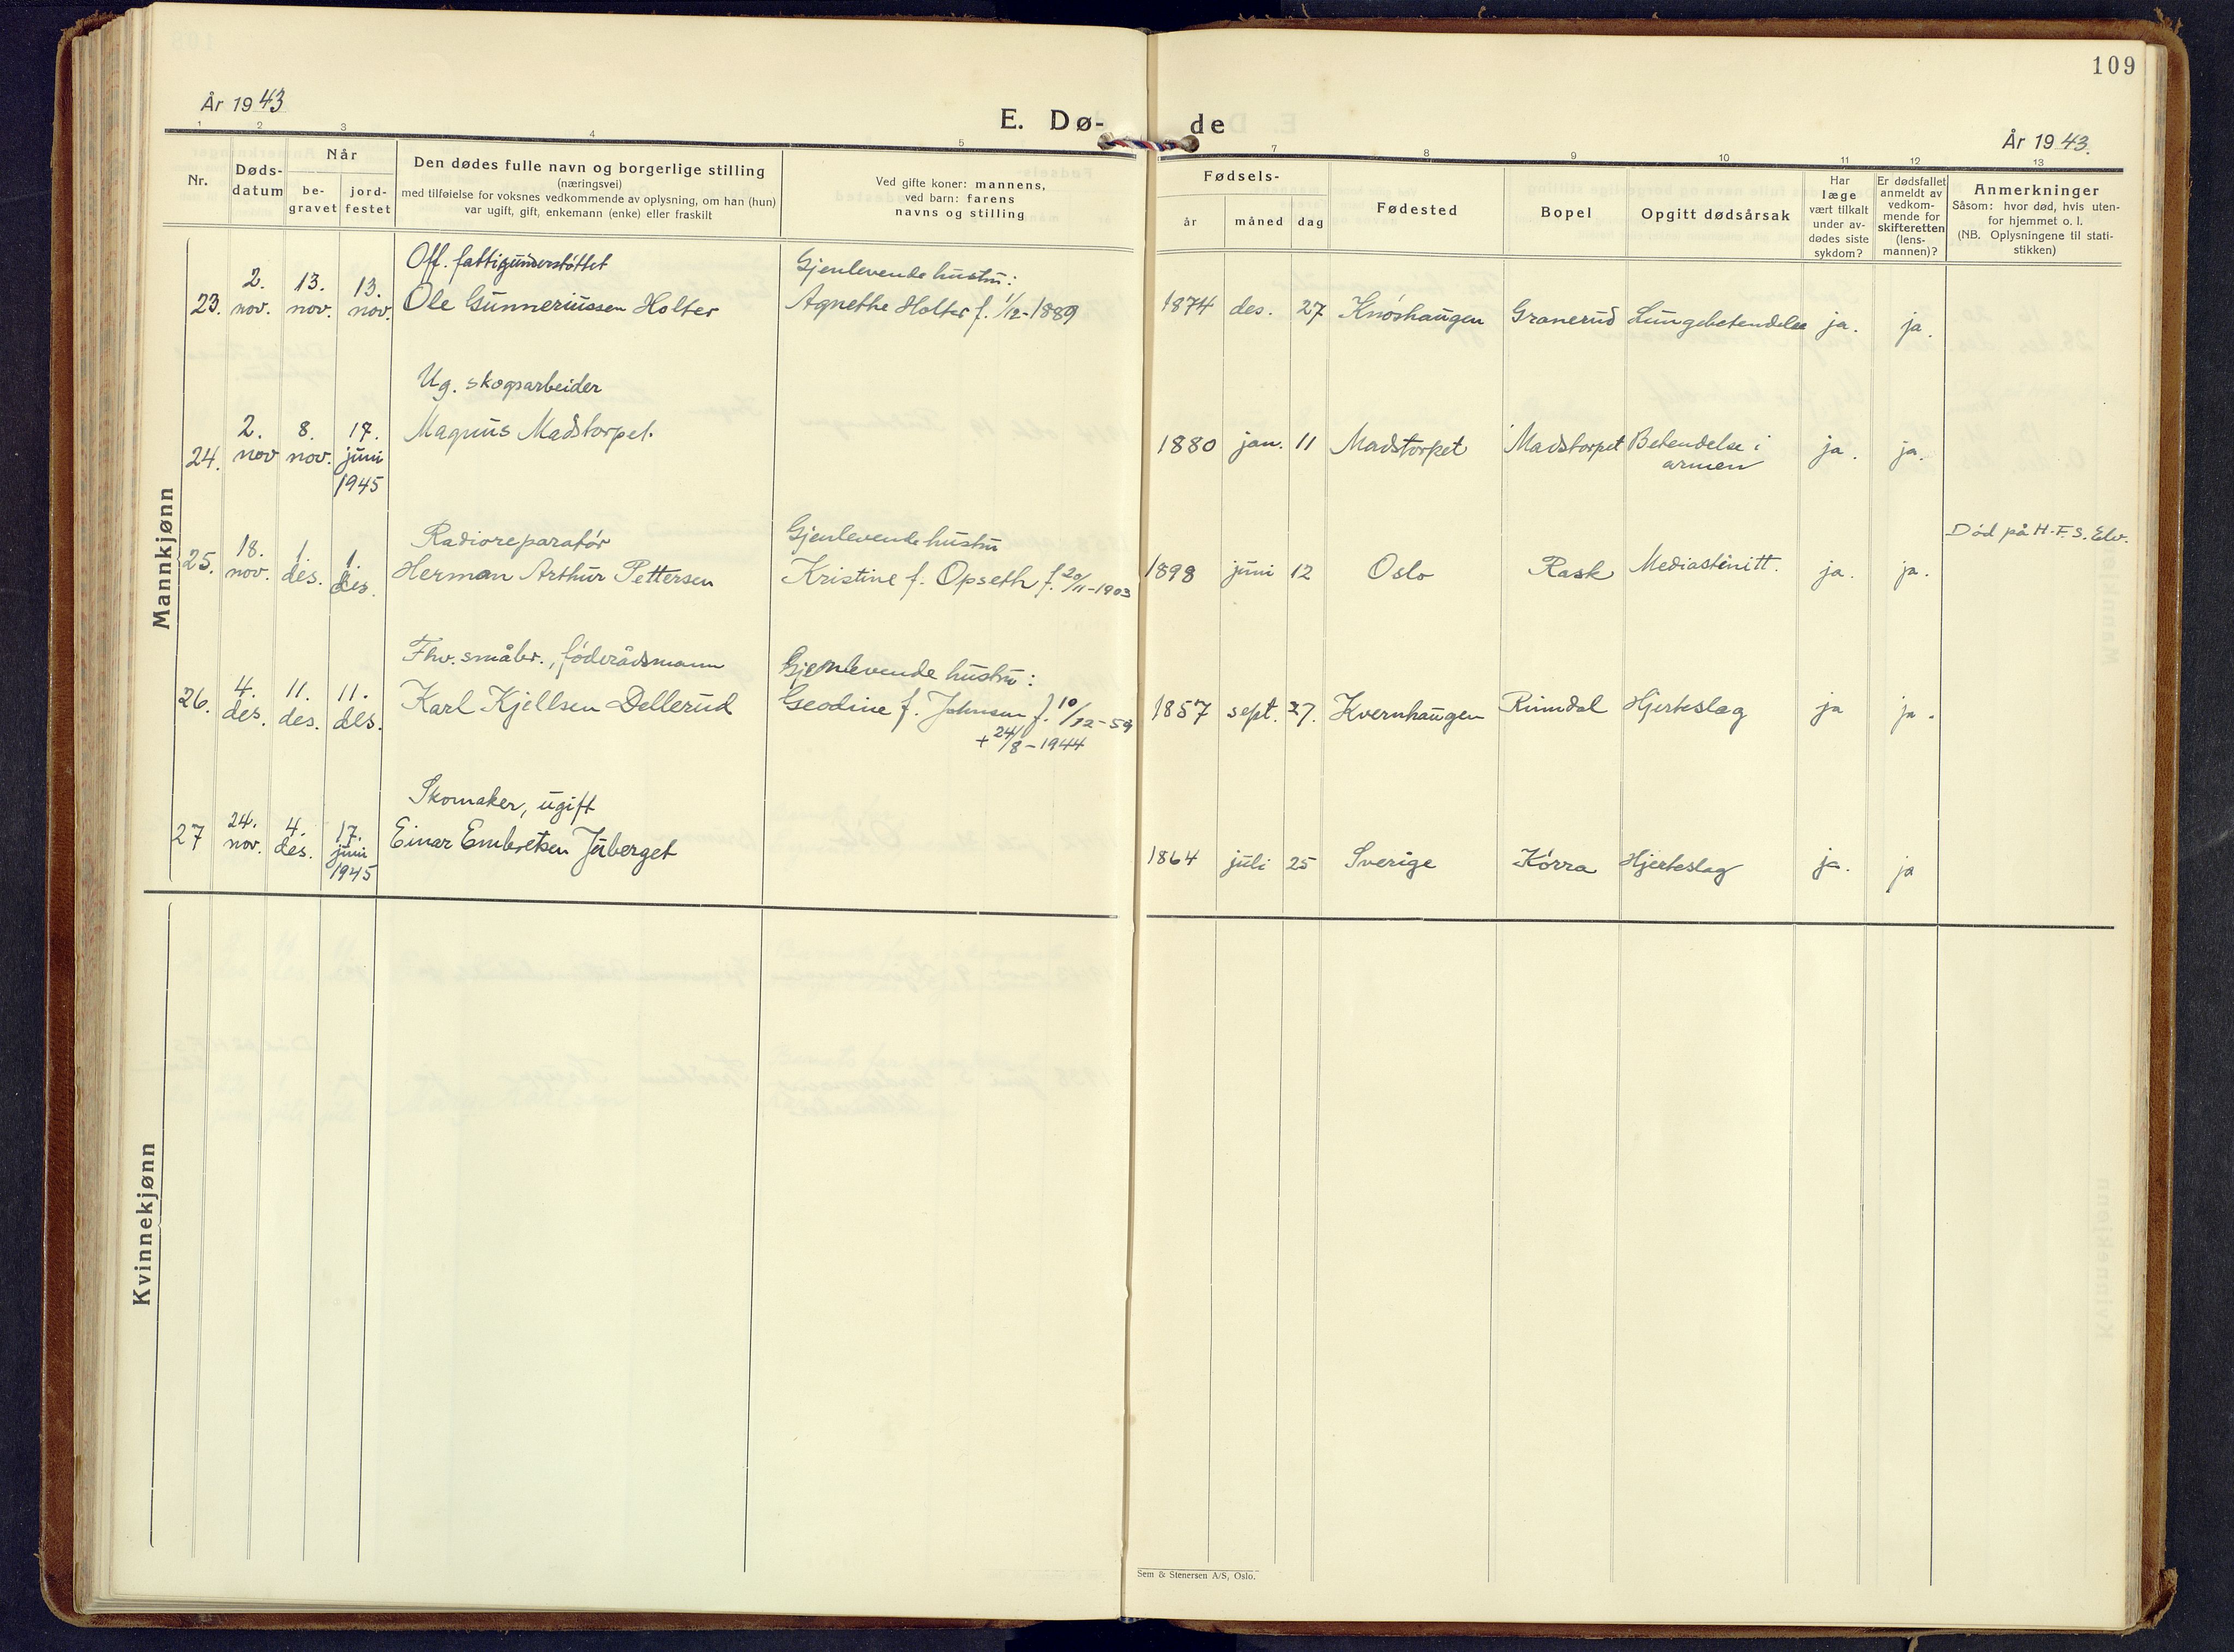 109
År 1943
E. Dø-
de
År 1943.
1 2 3 4 5 7 8 9 10 11 12 13
Nr.
Døds-
datum
Når
be-
gravet
jord-
festet
Den dødes fulle navn og borgerlige stilling
(næringsvei)
med tilføielse for voksnes vedkommende av oplysning, om han (hun)
var ugift, gift, enkemann (enke) eller fraskilt
Ved gifte koner: mannens,
ved barn: farens
navns og stilling
Fødsels-
år måned dag
Fødested
Bopel
Opgitt dødsårsak
Har
læge
vært tilkalt
under av-
dødes siste
sykdom?
Er dødsfallet
anmeldt av
vedkom-
mende for
skifteretten
(lens-
mannen)?
Anmerkninger
Såsom: hvor død, hvis uten-
for hjemmet o. l.
(NB. Oplysningene til stati-
stikken)
Mannkjønn
Off. fattigunderstøttet
Gjenlevende hustru:
23. 2. nov. 13. nov. 13. nov. Ole Gunneriussen Holter Agnethe Holter f. 1/12-1889 1874 des. 27 Knøshaugen Granerud Lungebetendelse ja. ja.
Ug. skogsarbeider
24. 2. nov 8. nov. 17. juni 1945 Magnus Madstorpet. 1880 jan. 11 Madstorpet Madstorpet Betendelse i armen ja. ja.
Radioreparatør
Gjenlevende hustru
Død på H.F.S. Elv.
25. 18. nov. 1. des. 1. des. Herman Arthur Pettersen Kristine f. Opseth f. 20/11-1903 1898 juni 12 Oslo Rask Mediastinitt. ja. ja.
Fhv. småbr., føderådsmann
Gjenlevende hustru:
26. 4. des. 11. des. 11. des. Karl Kjellsen Dellerud Geodine f. Johnsen f. 10/12-59 1857 sept. 27. Kvernhaugen Rinndal Hjerteslag ja ja.
+ 24/8-1944
Skomaker, ugift
27 24. nov. 4. des. 17. juni 1945 Einar Embretsen Juberget 1864 juli 25 Sverige Kørra Hjerteslag ja. ja
Kvinnekjønn
Sem & Stenersen A/S, Oslo.